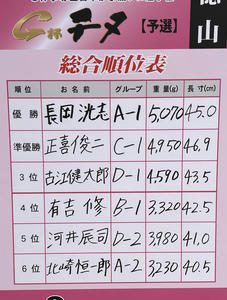 G杯チヌ【予選】
徳山
総合順位表
順位 お名前 グループ 重量(g) 長寸(cm)
優勝 長岡洸志 A-1 5,070 45.0
準優勝 正喜俊二 C-1 4,950 46.9
3位 古江健太郎 D-1 4,590 43.5
4位 有吉修 B-1 3,320 42.5
5位 河井辰司 D-2 3,980 41.0
6位 北崎恒一郎 A-2 3230 40.5